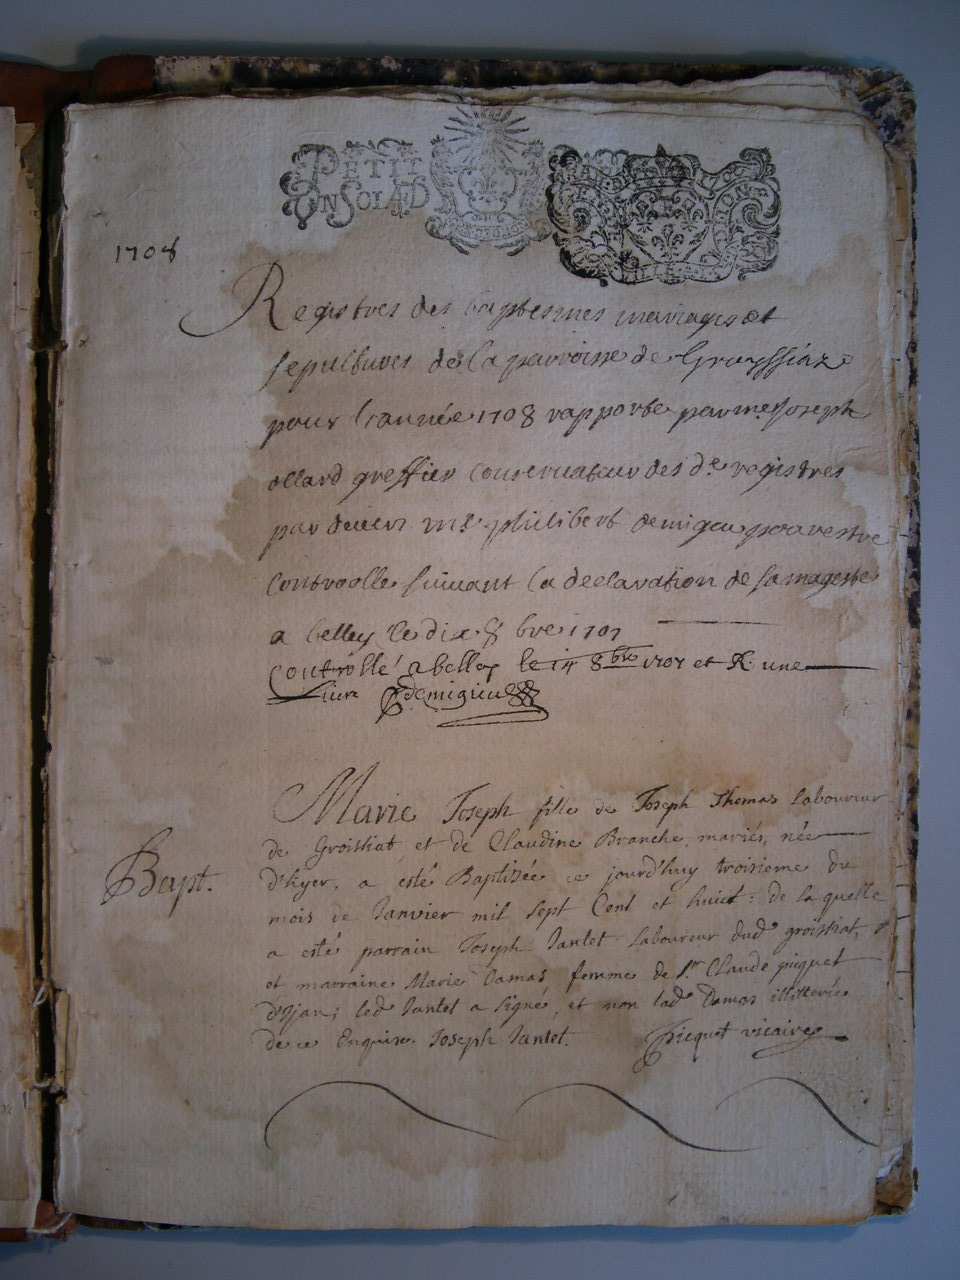 PETIT
UN SOL
1708
Registres des baptesmes mariages et
sepultures de la parroisse de
pour l'année 1708 rapporte par me Joseph
ollard greffier conservateur des d. registres
par devers me philibert demigieu pour estre
controolle suivant la declaration de sa mageste
a belley le dix 8bre 1707
Controllé a belley le 14 8bre 1707 et R. une
livre demigieu
Bapt.
Marie Joseph fille de Joseph Thomas Laboureur
de Groissiat et de Claudine Branche mariés, née
d'hyer, a esté Baptisée ce jourd'huy troisieme du
mois de Janvier mil sept Cent et huict : de la quelle
a esté parrain Joseph Jantet Laboureur dud groissiat,
et marraine Marie Damas femme de Sr Claude picquet
led Jantet a signé, et non lad Damas illitterée
de ce Enquise. Joseph Jantet. Picquet vicaire